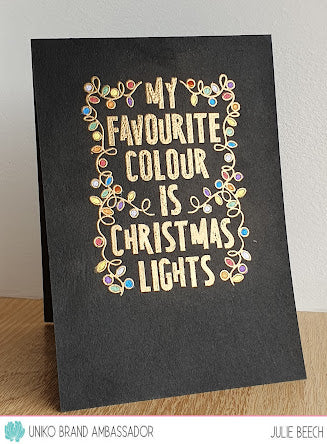 MY
FAVOURITE
COLOUR
IS
CHRISTMAS
LIGHTS
UNIKO BRAND AMBASSADOR
JULIE BEECH